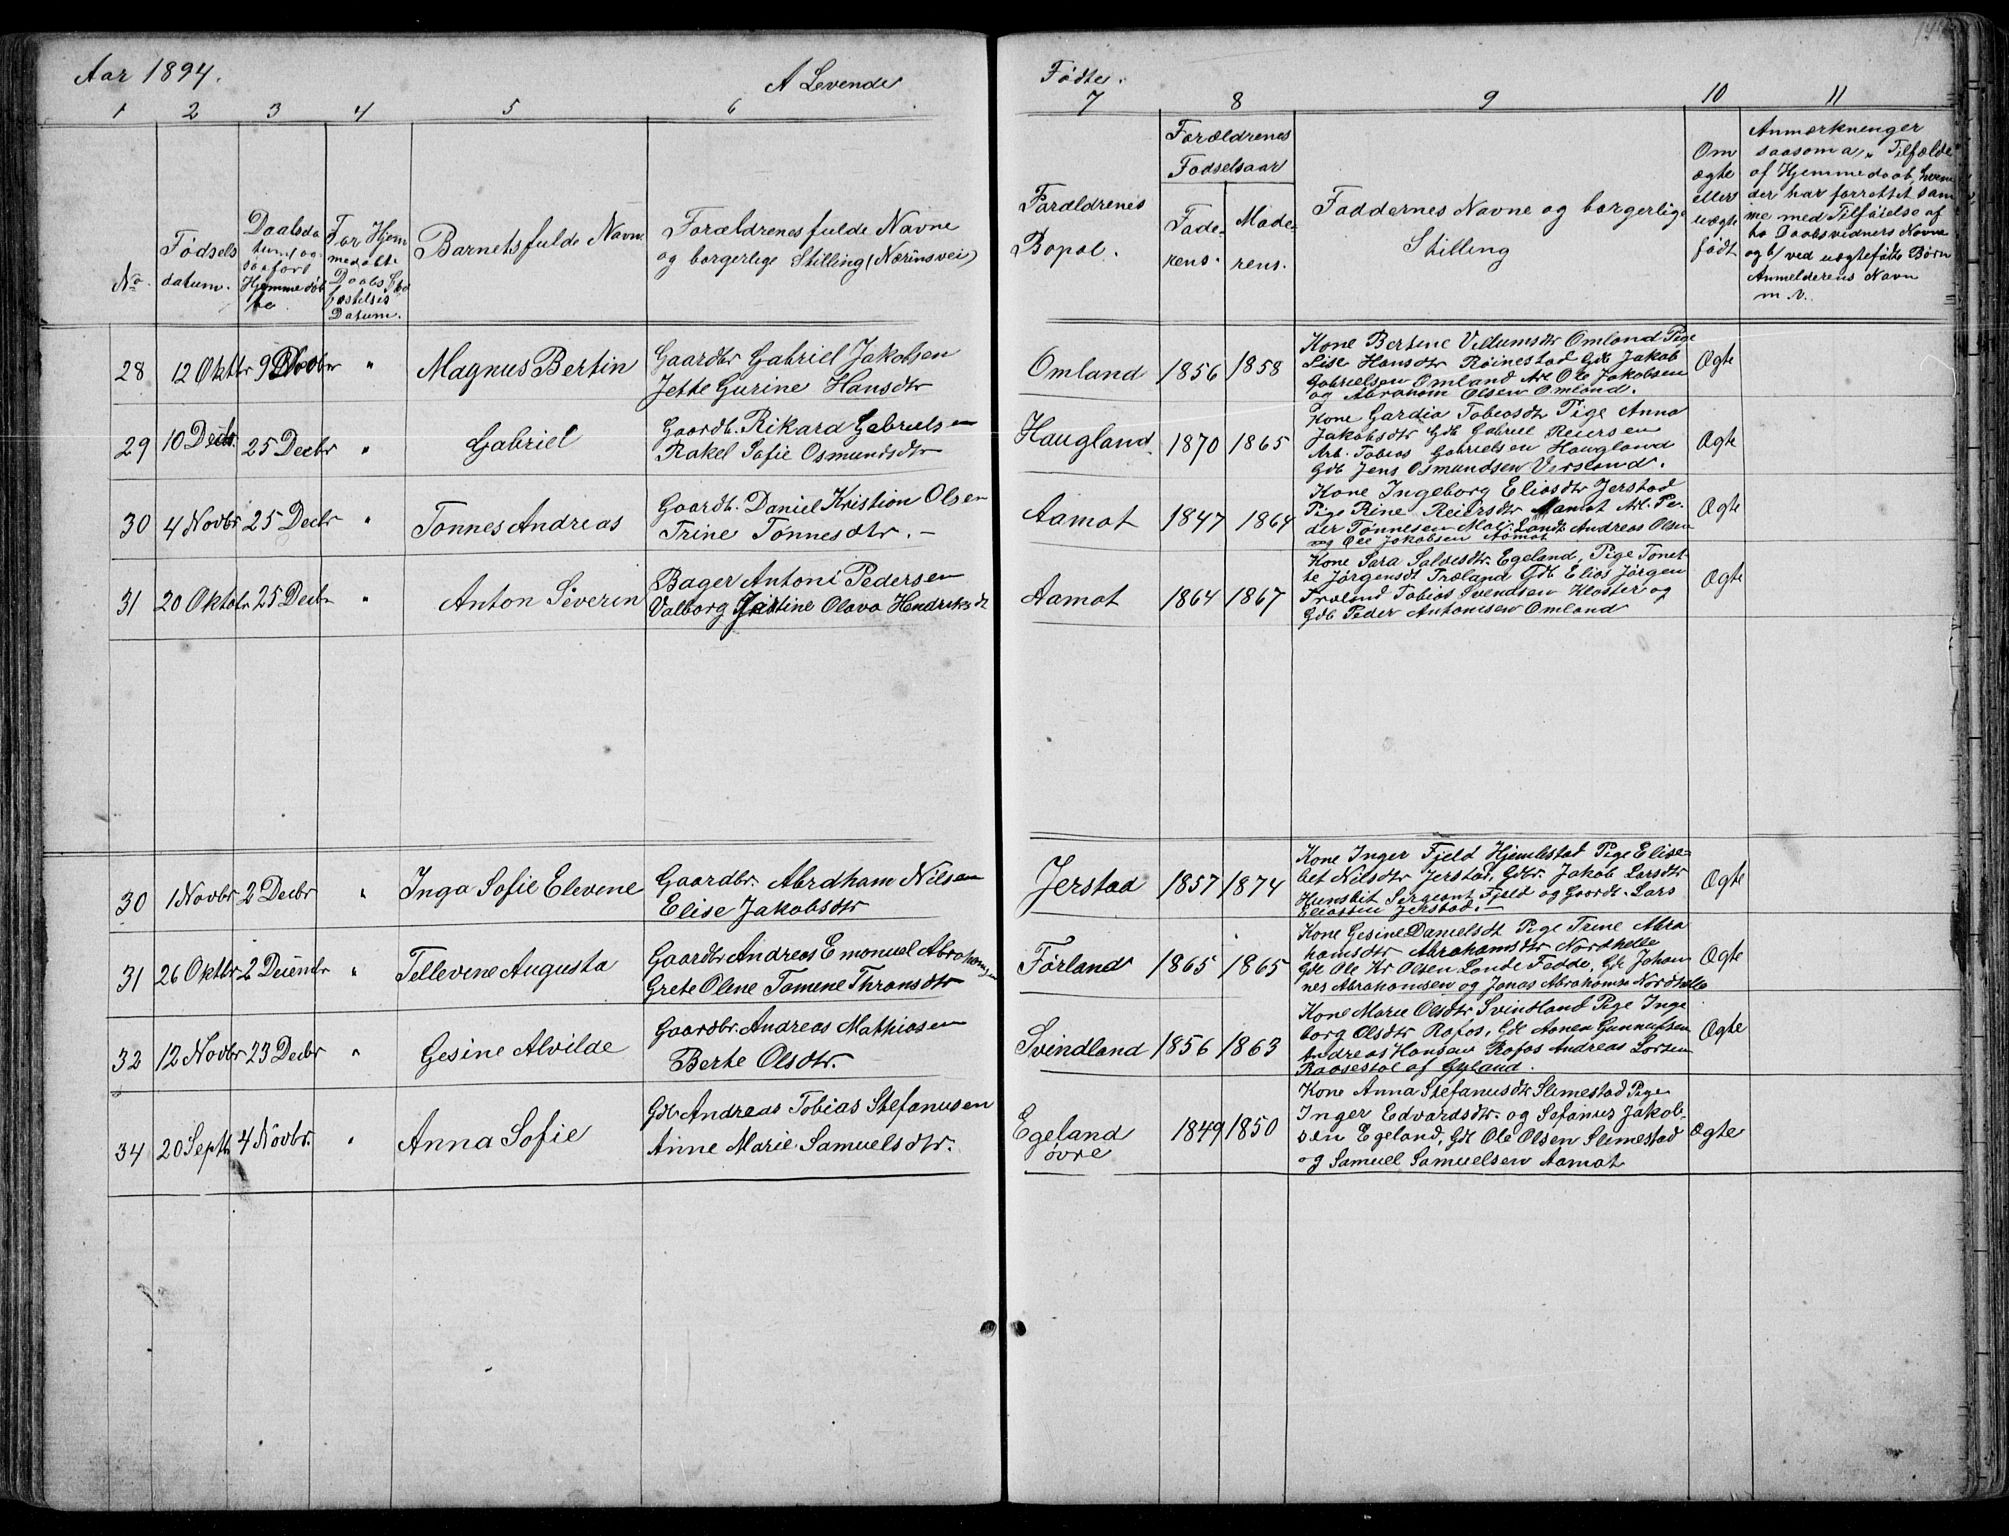 Aar 1894. A Levende Fødte.
1 2 3 4 5 6 7 8 9 10 11
No.
Fødsels
datum.
Daabsda
tum/og
saafort
Hjemmedøb
te
For Hjem
medøbte
Daabs Sta
fæstelsis
Datum.
Barnets fulde Navn
Forældrenes fulde Navne
og borgerlige Stilling (Nærinsvei)
Forældrenes
Bopæl.
Forældrenes
Fodselsaar
Fade-
rens.
Mode-
rens.
Faddernes Navne og borgerlige
Stilling
Om
ægte
eller
uægte
født
Anmærkninger
saasom a, Tilfælde
af Hjemmedaab, hvem
der har forrettet sam
me med Tilføielse af
to Daabsvidners Navne
og b/ ved uægtefødte Børn
Anmelderens Navn
m. v.
28 12 Oktbr 9 Decbr " Magnus Bertin
Gaardbr Gabriel Jakobsen
Jette Gurine Hansdtr
Omland 1856 1858
Kone Bertine Villumsdtr Omland Pige
Lise Hansdtr Røinestad Gdb Jakob
Gabrielsen Omland Arb Ole Jakobsen
og Abraham Olsen Omland.
Ægte
29 10 Decbr 25 Decbr " Gabriel
Gaardb. Rikard Gabrielsen
Rakel Sofie Osmundsdtr
Haugland. 1870 1865
Kone Gardia Tobiasdtr Pige Anna
Jakobsdtr Gdb Gabriel Reiersen
Arb. Tobias Gabrielsen Haugland
Gdb Jens Osmundsen Virsland.
Ægte
30 4 Novbr 25 Decbr " Tønnes Andreas
Gaardb. Daniel Kristian Olsen
Trine Tønnesdtr. -
Aamot 1847 1864
Kone Ingeborg Eliasdtr Jerstad
Pige Rine Reiersdtr Aamot Arb. Pe-
der Tønnesen Andreas Olsen
og Ole Jakobsen Aamot
Ægte
31 20 Oktobr 25 Decbr " Anton Severin
Bager Antoni Pedersen
Valborg Justine Olava Hendriksdt
Aamot 1864 1867
Kone Sara Salvesdtr Egeland, Pige Tonet-
te Jørgensdt Træland Gdb Elias Jørgen
Træland Tobias Svendsen Kloster og
Gdb Peder Antonisen Omland
Ægte
30 1 Novbr 2 Decbr " Inga Sofie Elevine
Gaardbr. Abraham Nilsen
Elise Jakobsdtr
Jerstad 1857 1874
Kone Inger Fjeld Hjemlestad Pige Elise-
bet Nilsdtr Jerstad, Gdbr. Jakob Larsdtr
Hunsbet Sergeant Fjeld og Gaardb. Lars
Eliassen Jerstad. -
Ægte
31 26 Oktbr 2 " Tellevine Augusta
Gaardbr Andreas Emanuel Abrahamsen
Grete Oline Tomene Thronsdtr
Førland 1865 1865
Kone Gesine Danielsdt Pige Trine Abra
hamsdtr Abrahamsdtr Nordhelle
Gdb Ole Kr Olsen Lande Fedde, Gdb Johan
nes Abrahamsen og Jonas Abrahams Nordhelle
Ægte
32 12 Novbr 23 Decbr " Gesine Alvilde
Gaardbr. Andreas Mathiasen
Berte Olsdtr.
Svindland 1856 1863
Kone Marie Olsdtr Svindland Pige Inge
borg Olsdtr Rafos, Gdb Aanen Gunnufsen
Andreas Hansen Rafos Andreas Larsen
Raasestøl af Gyland.
Ægte
34 20 Septbr 4 Novbr. " Anna Sofie
Gdb Andreas Tobias Stefanusen
Anne Marie Samuelsdtr.
Egeland
øvre
1849 1850
Kone Anna Stefanusdtr Slimestad Pige
Inger Edvardsdtr. og Sefanus Jakob-
sen Egeland, Gdb Ole Olsen Slimestad
og Samuel Samuelsen Aamot
Ægte